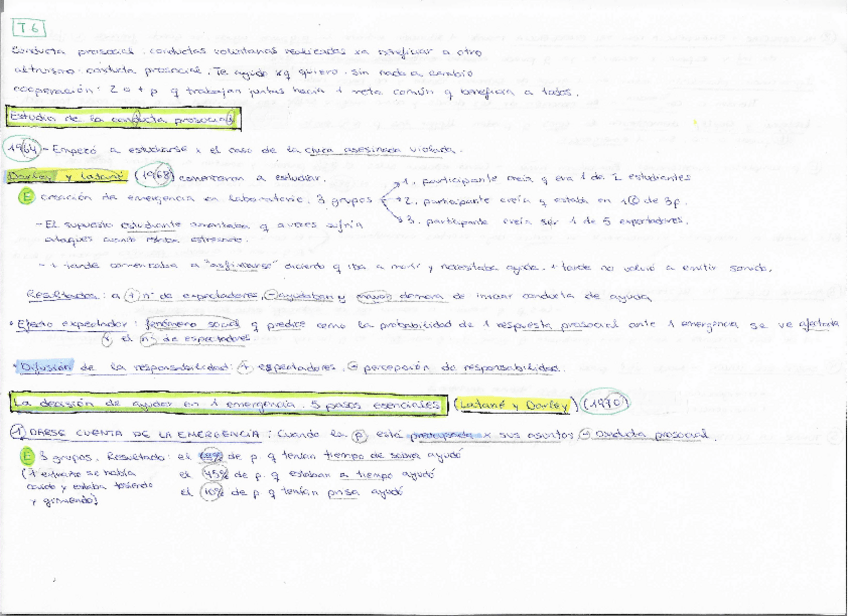 T6
Conducta prosocial: conductas voluntarias realizadas xa beneficiar a otro
altruismo: conducta prosocial. Te ayudo xq quiero. sin nada a cambio
cooperación: 2 o + p q trabajan juntas hacia 1 meta común q beneficia a todos.
Estudio de la conducta prosocial
1964 - Empezó a estudiarse x el caso de la chica asesinada violada.
Darley y Latané (1968) comenzaron a estudiar.
E creación de emergencia en laboratorio. 3 grupos
1. participante creía q era 1 de 2 estudiantes
2. participante creía q estaba en 1 de 3p.
3. participante creía ser 1 de 5 espectadores.
- El supuesto estudiante comentaba q a veces sufría
ataques cuando estaba estresado.
- + tarde comenzaba a "asfixiarse" diciendo q iba a morir y necesitaba ayuda. + tarde no volvió a emitir sonido.
Resultados: a + nº de espectadores, - ayudaban y mayor demora de iniciar conducta de ayuda
• Efecto espectador: fenómeno social q predice como la probabilidad de 1 respuesta prosocial ante 1 emergencia se ve afectada
x el nº de espectadores
• Difusión de la responsabilidad: + espectadores, - percepción de responsabilidad.
La decisión de ayudar en 1 emergencia. 5 pasos esenciales (Latané y Darley) (1970)
1 DARSE CUENTA DE LA EMERGENCIA: Cuando la p está preocupada x sus asuntos, - conducta prosocial.
E 3 grupos. Resultado: el % de p. q tenían tiempo de sobra ayudó
(1 extraño se había el 45% de p. q estaban a tiempo ayudó
caído y estaba tosiendo el 10% de p q tenían prisa ayudó
y gimiendo)